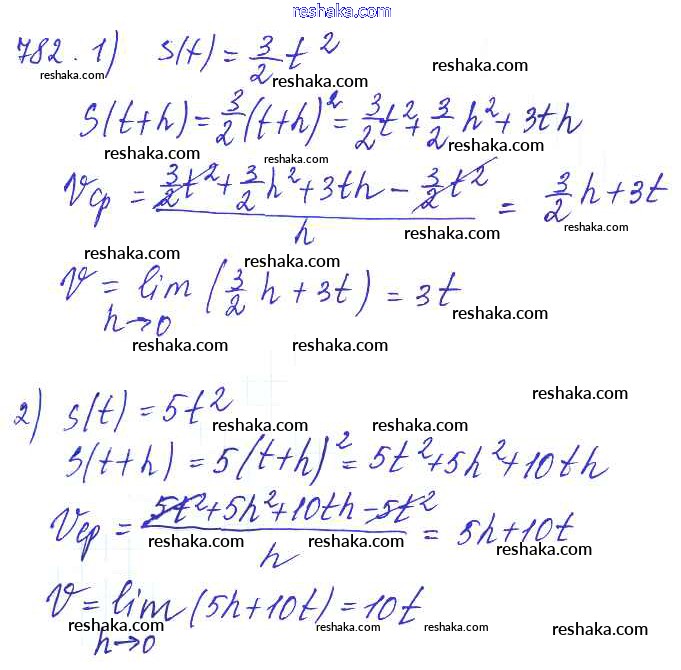 reshaka.com
782. 1) S(t) = 3/2 t²
reshaka.com reshaka.com reshaka.com
S(t+h) = 3/2 (t+h)² = 3/2 t² + 3/2 h² + 3th
reshaka.com reshaka.com reshaka.com
Vср = (3/2 t² + 3/2 h² + 3th − 3/2 t²)/h = 3/2 h + 3t
reshaka.com reshaka.com reshaka.com reshaka.com
V = lim (3/2 h + 3t) = 3t
h→0
reshaka.com reshaka.com reshaka.com
reshaka.com
2) S(t) = 5t²
reshaka.com reshaka.com
S(t+h) = 5(t+h)² = 5t² + 5h² + 10th
reshaka.com reshaka.com reshaka.com
Vср = (5t² + 5h² + 10th − 5t²)/h = 5h + 10t
reshaka.com reshaka.com reshaka.com
V = lim (5h + 10t) = 10t
h→0
reshaka.com reshaka.com reshaka.com reshaka.com